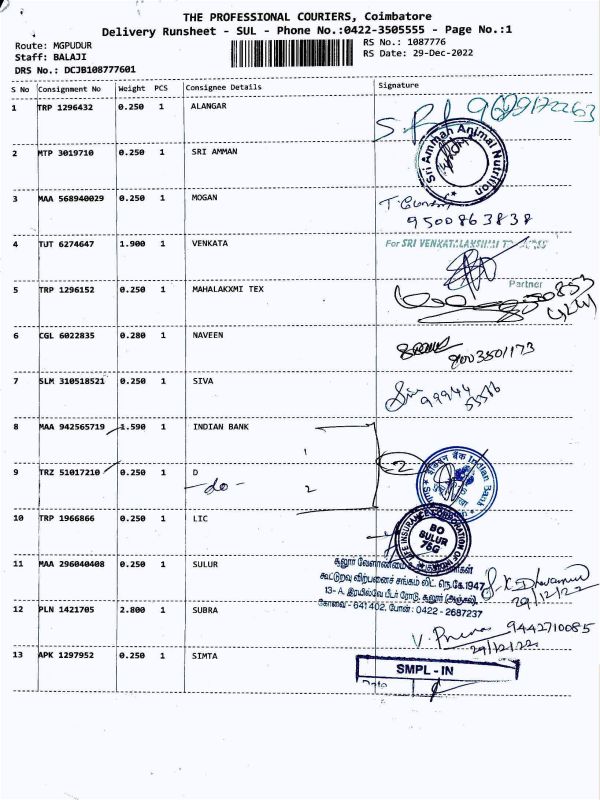 THE PROFESSIONAL COURIERS, Coimbatore
Delivery Runsheet - SUL - Phone No.:0422-3505555 - Page No.:1
Route: MGPUDUR
RS No.: 1087776
Staff: BALAJI
RS Date: 29-Dec-2022
DRS No.: DCJB108777601
S No Consignment No Weight PCS Consignee Details Signature
1 TRP 1296432 0.250 1 ALANGAR
2 MTP 3019710 0.250 1 SRI AMMAN
Sri Amman Animal Nutrition
3 MAA 568940029 0.250 1 MOGAN
9500863838
4 TUT 6274647 1.900 1 VENKATA
For SRI VENKATALAKSHMI
Partner
5 TRP 1296152 0.250 1 MAHALAKXMI TEX
6 CGL 6022835 0.280 1 NAVEEN
9003501173
7 SLM 310518521 0.250 1 SIVA
Siva
99944
8 MAA 942565719 1.590 1 INDIAN BANK
1
2
इंडियन बैंक Indian Bank
9 TRZ 51017210 0.250 1 D
-do- 2
10 TRP 1966866 0.250 1 LIC
LIFE INSURANCE CORPORATION OF INDIA
BO
SULUR
76G
11 MAA 296040408 0.250 1 SULUR
சூலூர் வேளாண்மை
கூட்டுறவு விற்பனைச் சங்கம் லிட். நெ.கே.1947
13-A, இரயில்வே பீடர் ரோடு, சூலூர் (அஞ்சல்),
கோவை - 641 402. போன் : 0422 - 2687237
29/12/22
12 PLN 1421705 2.800 1 SUBRA
9442710085
29/12/22
13 APK 1297952 0.250 1 SIMTA
SMPL - IN
Date